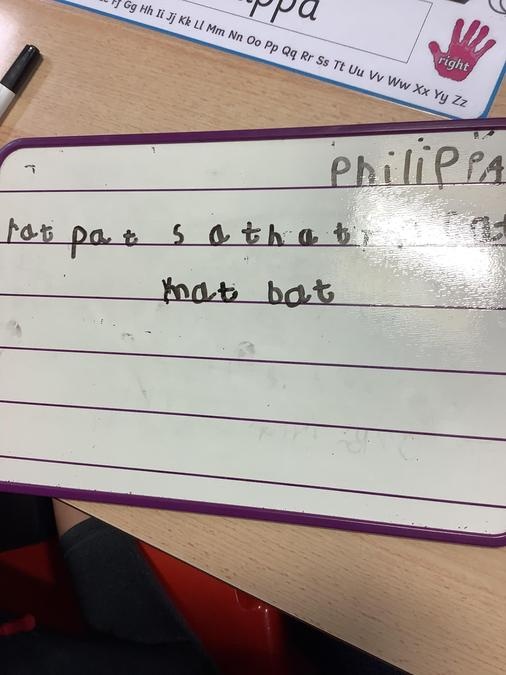 ppa
Ff Gg Hh Ii Jj Kk Ll Mm Nn Oo Pp Qq Rr Ss Tt Uu Vv Ww Xx Yy Zz
right
PhiliPPA
rat pat s a t h a t
mat bat